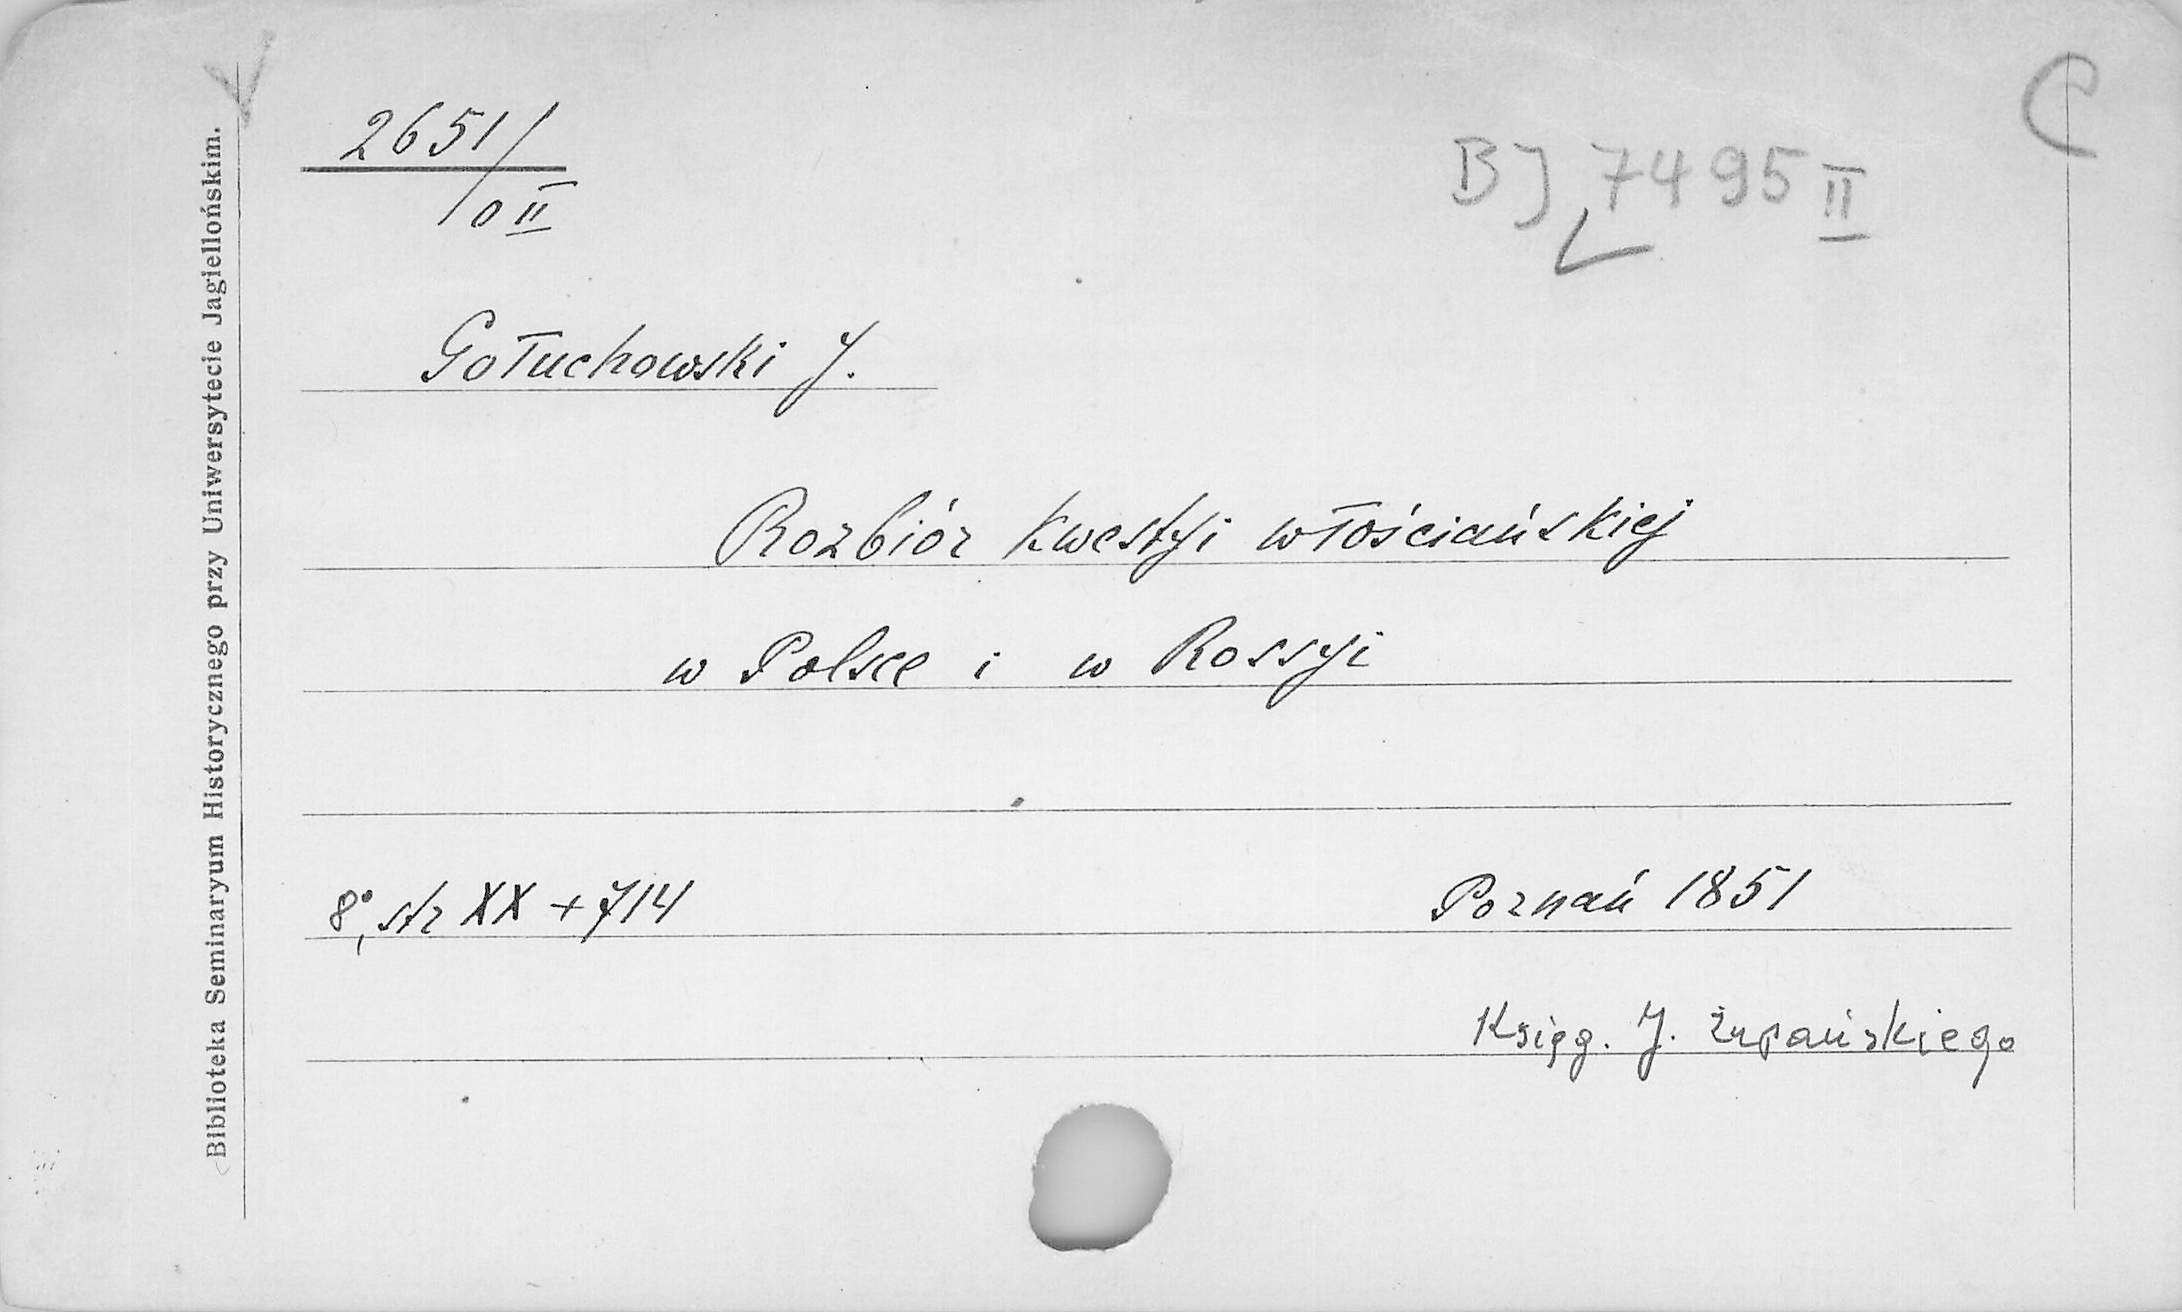 Biblioteka Seminaryum Historycznego przy Uniwersytecie Jagiellońskim.
2651/
/0 II
BJ 7495 II
C
Gołuchowski J.
Rozbiór kwestyi włościańskiej
w Polsce i w Rossyi
8°, str XX + 714
Poznań 1851
Księg. J. Żupańskiego